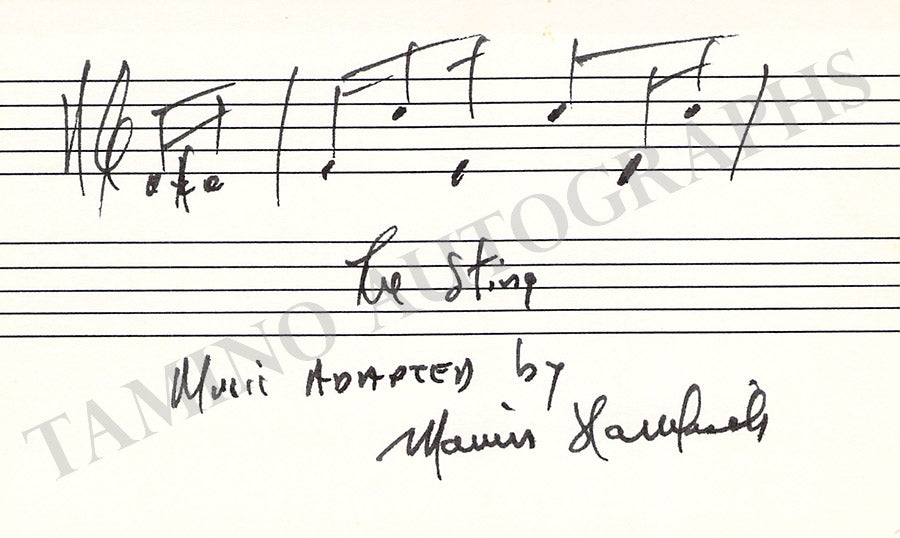 The Sting
Music ADAPTED by
Marvin Hamlisch
TAMINO AUTOGRAPHS